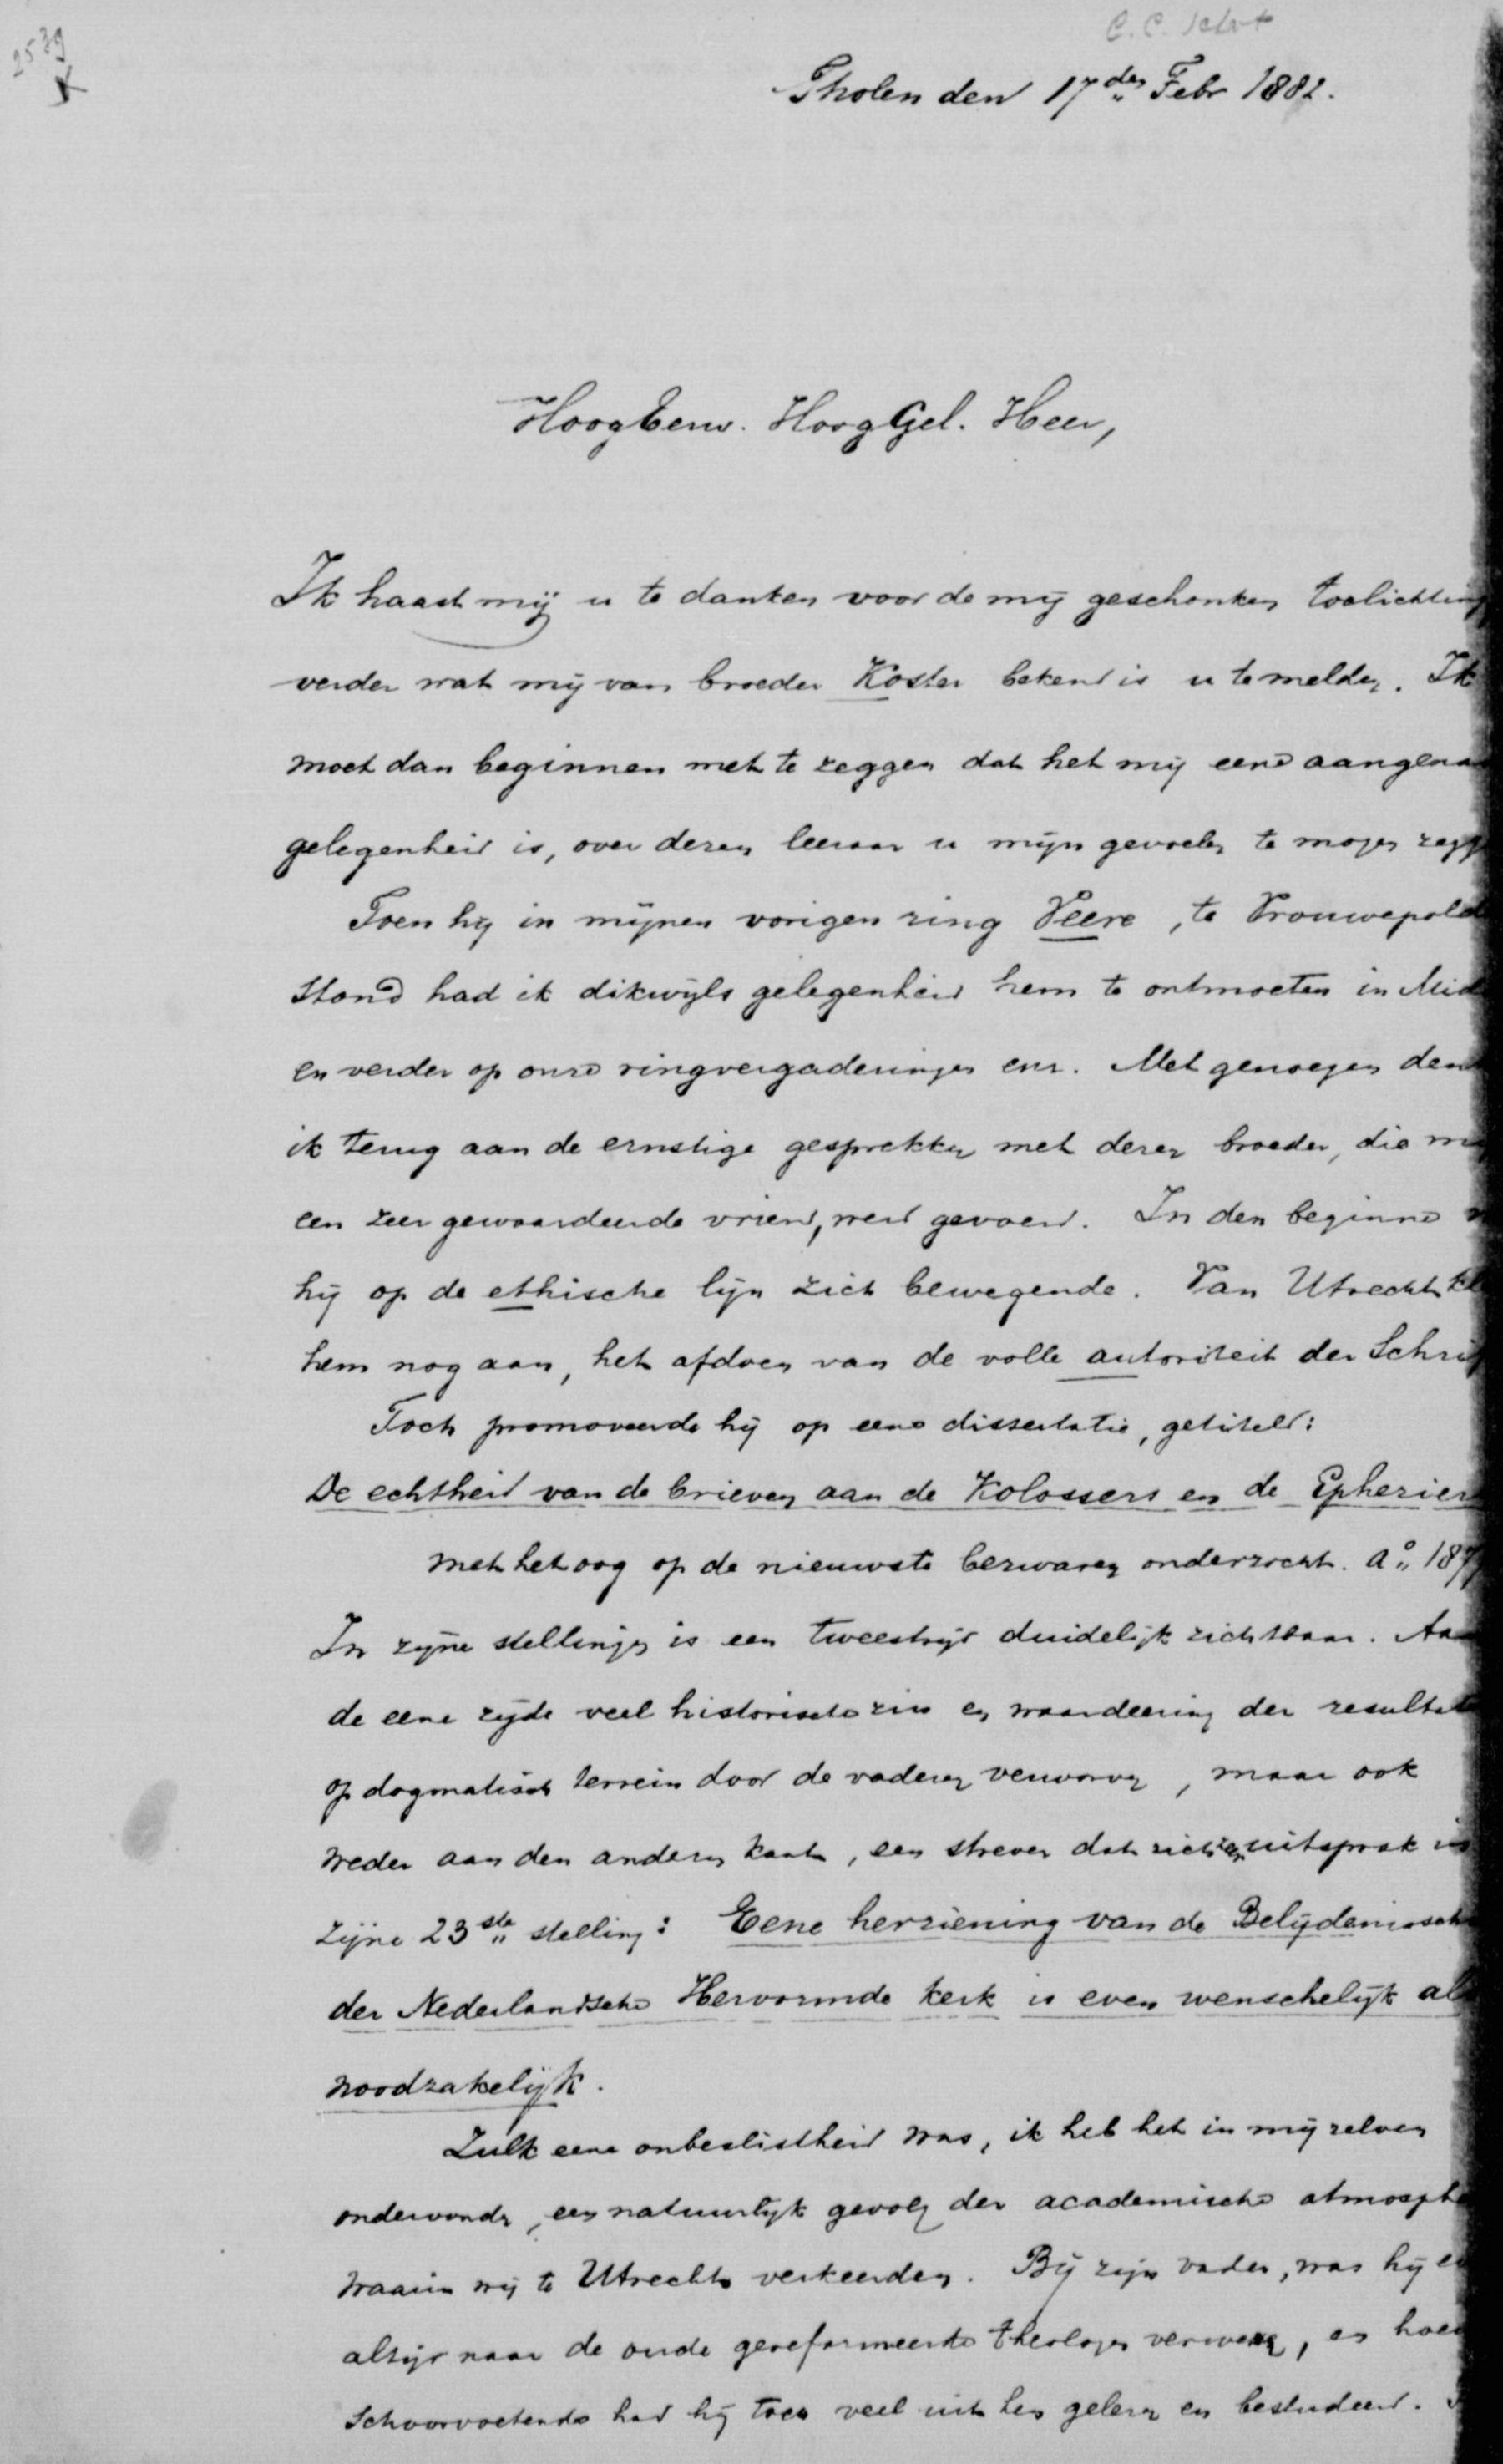 2539
C. C. Schot
Tholen den 17den Febr 1882.
HoogEerw. HoogGel. Heer,
Ik haast mij u te danken voor de mij geschonken toelichting
verder wat mij van broeder Koster bekend is u te melden. Ik
moet dan beginnen met te zeggen dat het mij eene aangena
gelegenheid is, over dezen leeraar u mijn gevoelen te mogen zegg
Toen hij in mijnen vorigen ring Veere, te Vrouwepold
stond had ik dikwijls gelegenheid hem te ontmoeten in Mid
en verder op onze ringvergaderingen enz. Met genoegen den
ik terug aan de ernstige gesprekken met dezen broeder, die m
een zeer gewaardeerde vriend, werd gevoerd. In den beginne
hij op de ethische lijn zich bewegende. Van Utrecht kl
hem nog aan, het afdoen van de volle autoriteit der Schrif
Toch promoveerde hij op eene dissertatie, getiteld:
De echtheid van de brieven aan de Kolossers en de Epheziers
met het oog op de nieuwste bezwaren onderzocht. Ao 187
In zijne stellingen is een tweestrijd duidelijk zichtbaar. Aa
de eene zijde veel historische zin en waardeering der resultat
op dogmatisch terrein door de vaderen verworven, maar ook
weder aan den anderen kant, een streven dat zich uitsprak in
zijne 23ste stelling: Eene herziening van de Belijdenissch
der Nederlandsche Hervormde kerk is even wenschelijk als
noodzakelijk.
Zulk eene onbeslistheid was, ik heb het in mij zelven
ondervonden, een natuurlijk gevolg der academische atmosph
waarin wij te Utrecht verkeerden. Bij zijn vader, was hij
altijd naar de oude gereformeerde theologen verwezen, en hoe
Schoorvoetende had hij toen veel uit hen gelezen en bestudeerd.